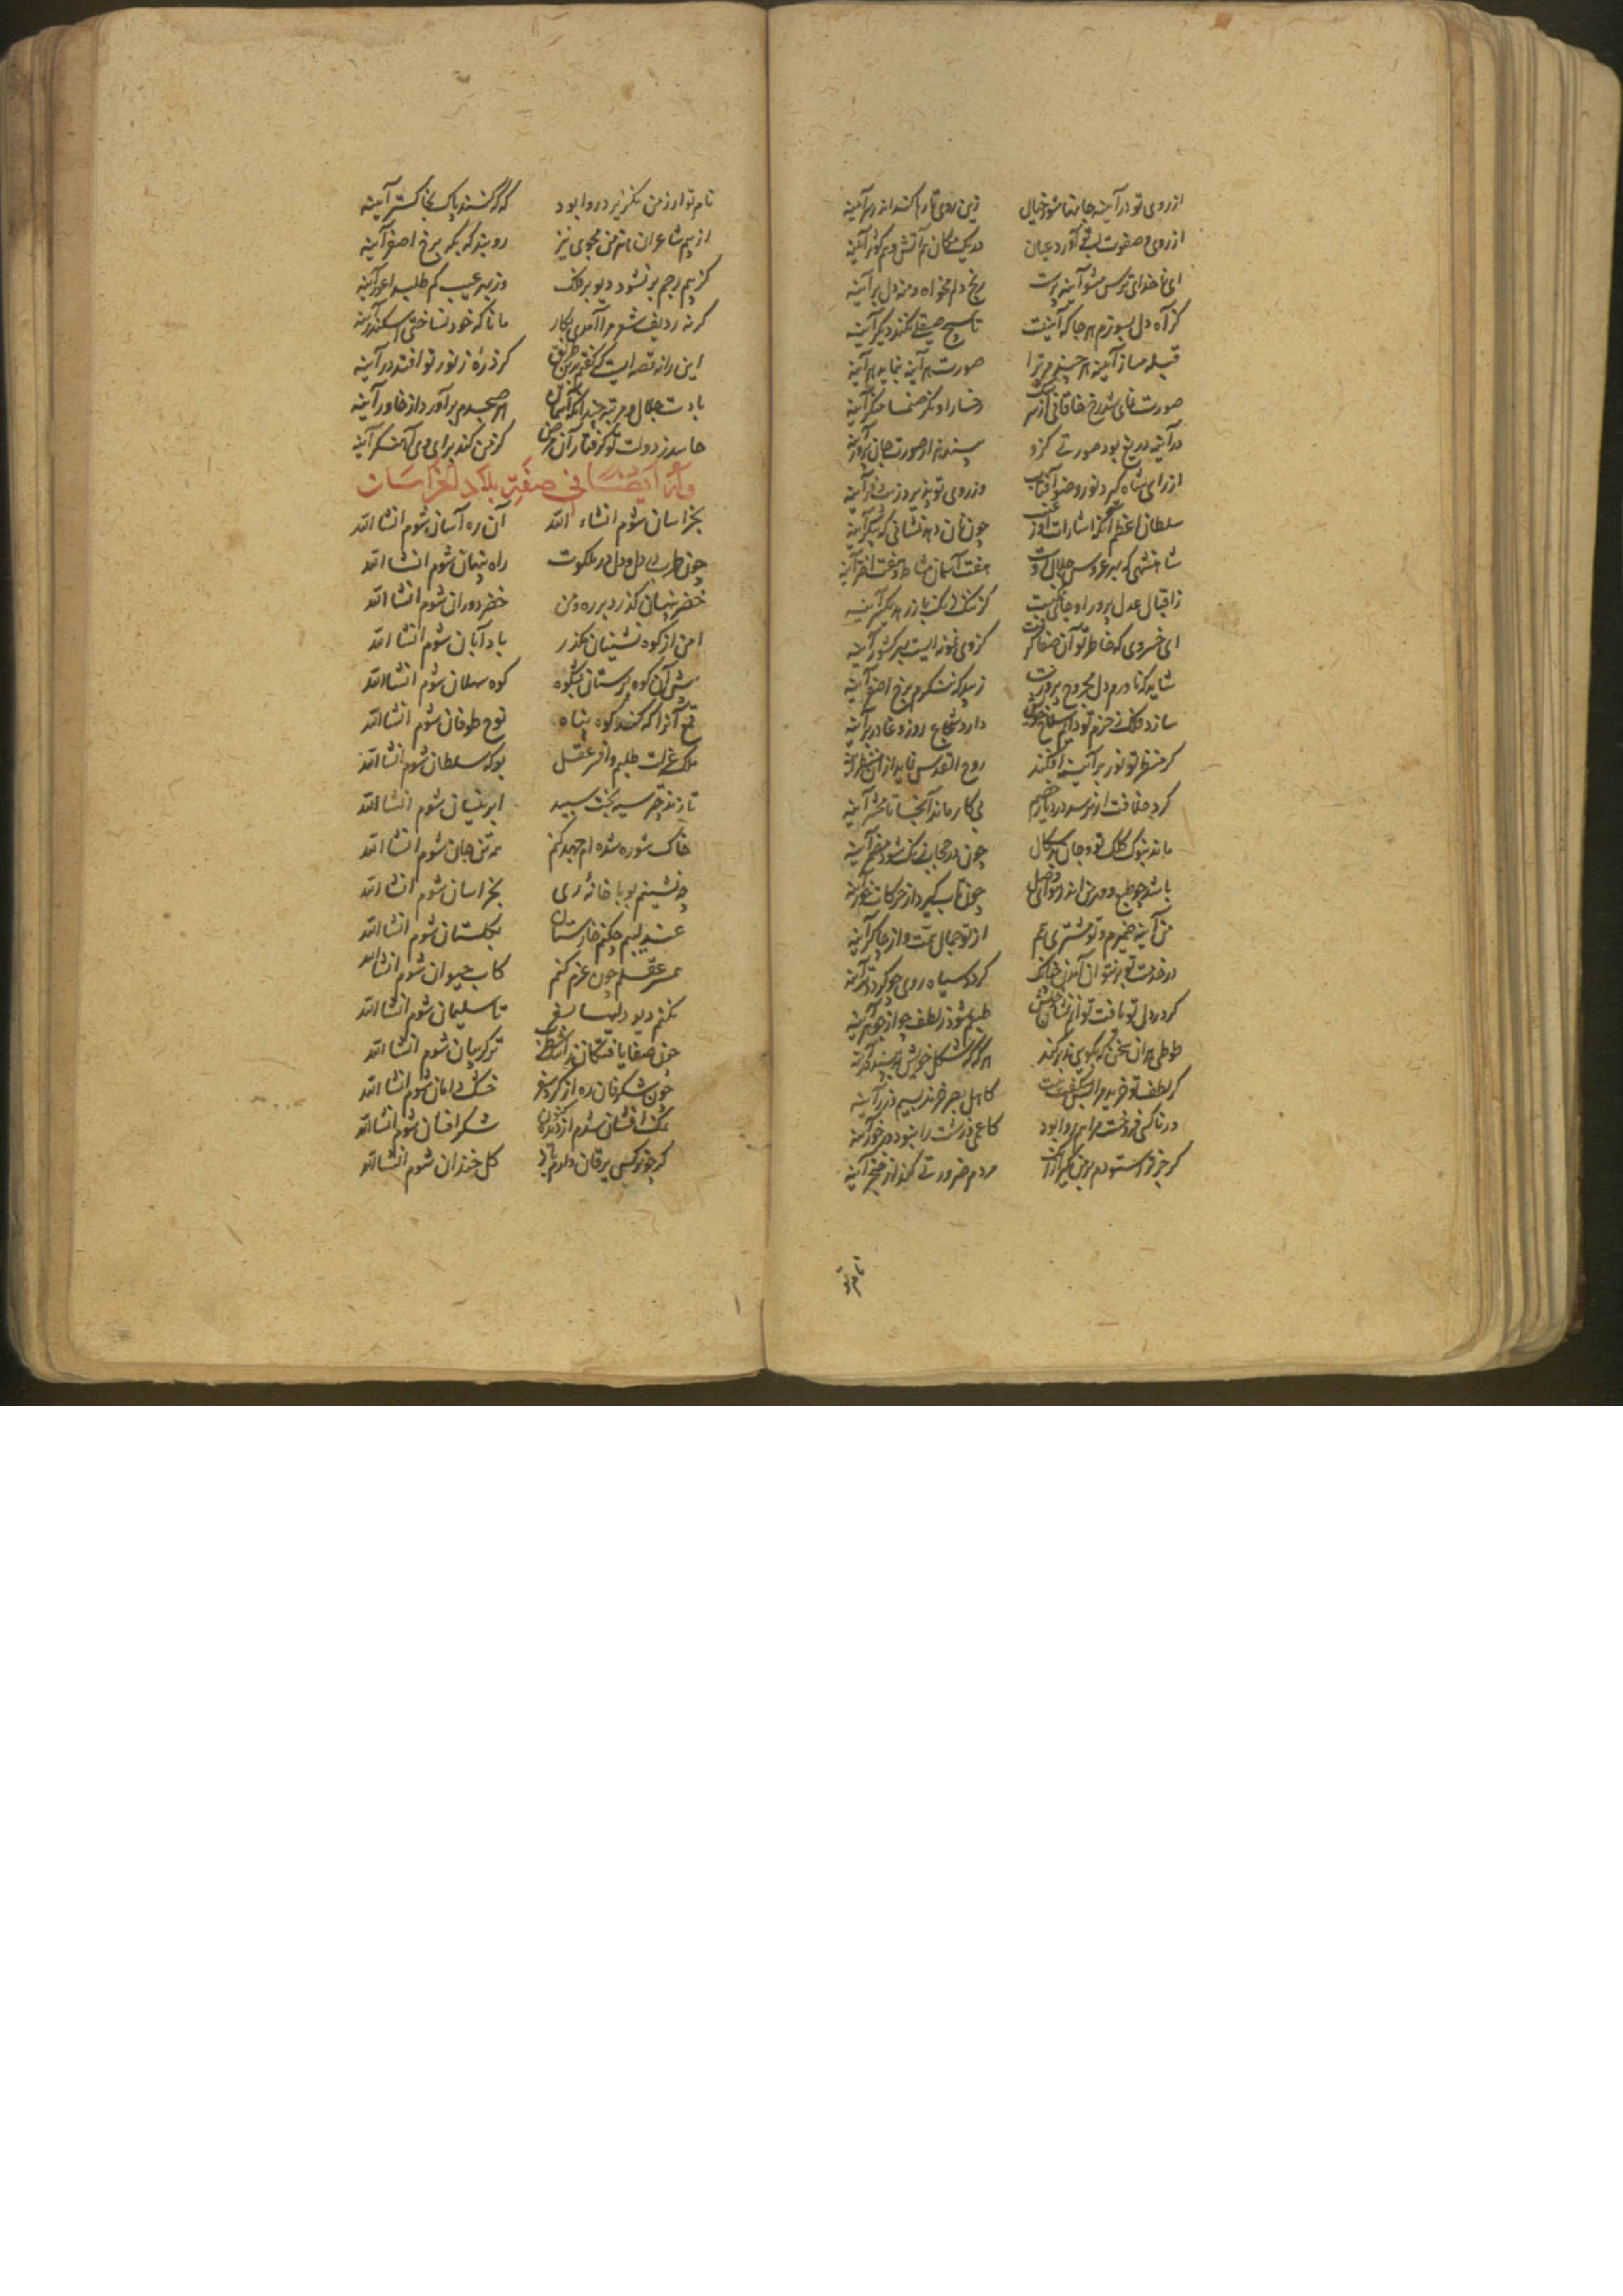 از روی تو در آینه جانها شود خیال زین روی تار ها کنند اندر آینه
از روی و صفوت آورد عیان در یک مکان هم آتش و هم کوثر آینه
ای ناخدای ترس مشو آینه پرست رنج دلم مخواه و منه دل بر آینه
کز آه دل بسوزم هر جا که آینه است تا هیچ صیقلی نکند دیگر آینه
قبله مساز آینه هر چند مر ترا صورت هر آینه بنماید هر آینه
صورت نمای شد رخ خاقانی از سرشک رخسار او نگر صنما منگر آینه
در آینه دریغ بود صورتی کزو بیند هزار صورت جان پرور آینه
از رای شاه گیرد نور و ضو آفتاب وز روی تو پذیرد زیب و فر آینه
سلطان اعظم آنکه اشارات او ز غیب چون دهد نشانی کز پیکر آینه
شاهنشهی که بهر عروس جلال اوست هفت آسمان مشاطه و هفت اختر آینه
ز اقبال عدل پرور او جای آن هست کز ننگ باز رهد یکسر آینه
ای خسروی که خاطر تو آن صفا گرفت کز وی نمونه ایست بهر کشور آینه
شاید که ناورم دل مجروح بر درت زیبد که ننگرم برخ اصفر آینه
سازد فلک ز حزم تو دایم سلاح خویش دارد شجاع روز وغا در بر آینه
گر منظر تو نور بر آینه افکند روح القدس نماید از آن منظر آینه
گرد خلافت ار برسد در دیار خصم بی کار ماند آنجا تا محشر آینه
ماند بنوک کلک تو و جان بدسگال چون در حجاب زنگ شود مضمر آینه
باشد چو طبع دور من اندر هوای وصل چون تاب گیرد از حرکات خور آینه
من آینه ضمیرم و تو مشتری همم از تو جمال همت و از چاکر آینه
در خدمت تو بر نتوان آمدن گردد سیاه روی چو گردد تر آینه
گر در دل تو یافت توانم نشان خویش طبعم شود ز لطف چو از جوهر آینه
طوطی هر آن سخن که بگویی ز بر کند هرگه که شکل خویش ببیند در آینه
گر لطف تو خرید مرا بس شگفت نیست کاهل بصر خرند بسیم و زر آینه
ور ناکسی فروخت مرا هم روا بود کاعمی و زشت را نبود درخور آینه
گر جز ترا ستودم بر من مگیر از آنک مردم ضرورتی کند از خنجر آینه
نام تو
نام تو ار ز من نگزیرد روا بود که گر کنند پاک بخاکستر آینه
از بیم شاعران نان من مجوی نیز رو بند که یکه برخ اصفر آینه
کز بیم رجم بر نشود دیو بر فلک وز بیم عیب کم طلبد اعور آینه
گر نه ردیف شعر مرا آمدی بکار مانا که خود نساختی اسکندر آینه
این را نه قصه ایست که گفتم برین طریق گر ذره ز نور تو افتد در آینه
بادت جلال و مرتبه چندانکه آسمان هر صبحدم بر آورد از خاور آینه
حاسد ز دولت تو گرفتار آن مرض کز من کند برای وی آهنگر آینه
وله ایضا فی صفة بلاد الخراسان
بخراسان شوم انشاء الله آن ره آسان شوم انشا الله
چون طرب در دل و دل در ملکوت راه پنهان شوم انشا الله
خضر پنهان گذرد بر ره و من خضر دوران شوم انشا الله
امن از کوه نشینان گذر باد آبان شوم انشا الله
پیش آن کوه پرستان بشکوه کوه سهلان شوم انشا الله
تیغ آنرا که کند کوه پناه نوح طوفان شوم انشا الله
ملک عزلت طلبم و افسر عقل بو که سلطان شوم انشا الله
تا زند قهر سیه بخت سپید ابر نیسان شوم انشا الله
خاک شوره شده ام جهد کنم همه تن جان شوم انشا الله
چه نشینم بوبا خانه ری بخراسان شوم انشا الله
عندلیبم چکنم خارستان بگلستان شوم انشا الله
خضر عقلم چون عزم کنم کاب حیوان شوم انشا الله
نکنم دیو دلیها بسفر تا سلیمان شوم انشا الله
چون صفا یافتگان ز اشک طرب تر گریبان شوم انشا الله
چون شگرفان ره از گرد سفر خشک دامان شوم انشا الله
مشک افشان شدم از دیده کنون شکر افشان شوم انشا الله
گر چو نرگس یرقان دارم باز گل خندان شوم انشا الله